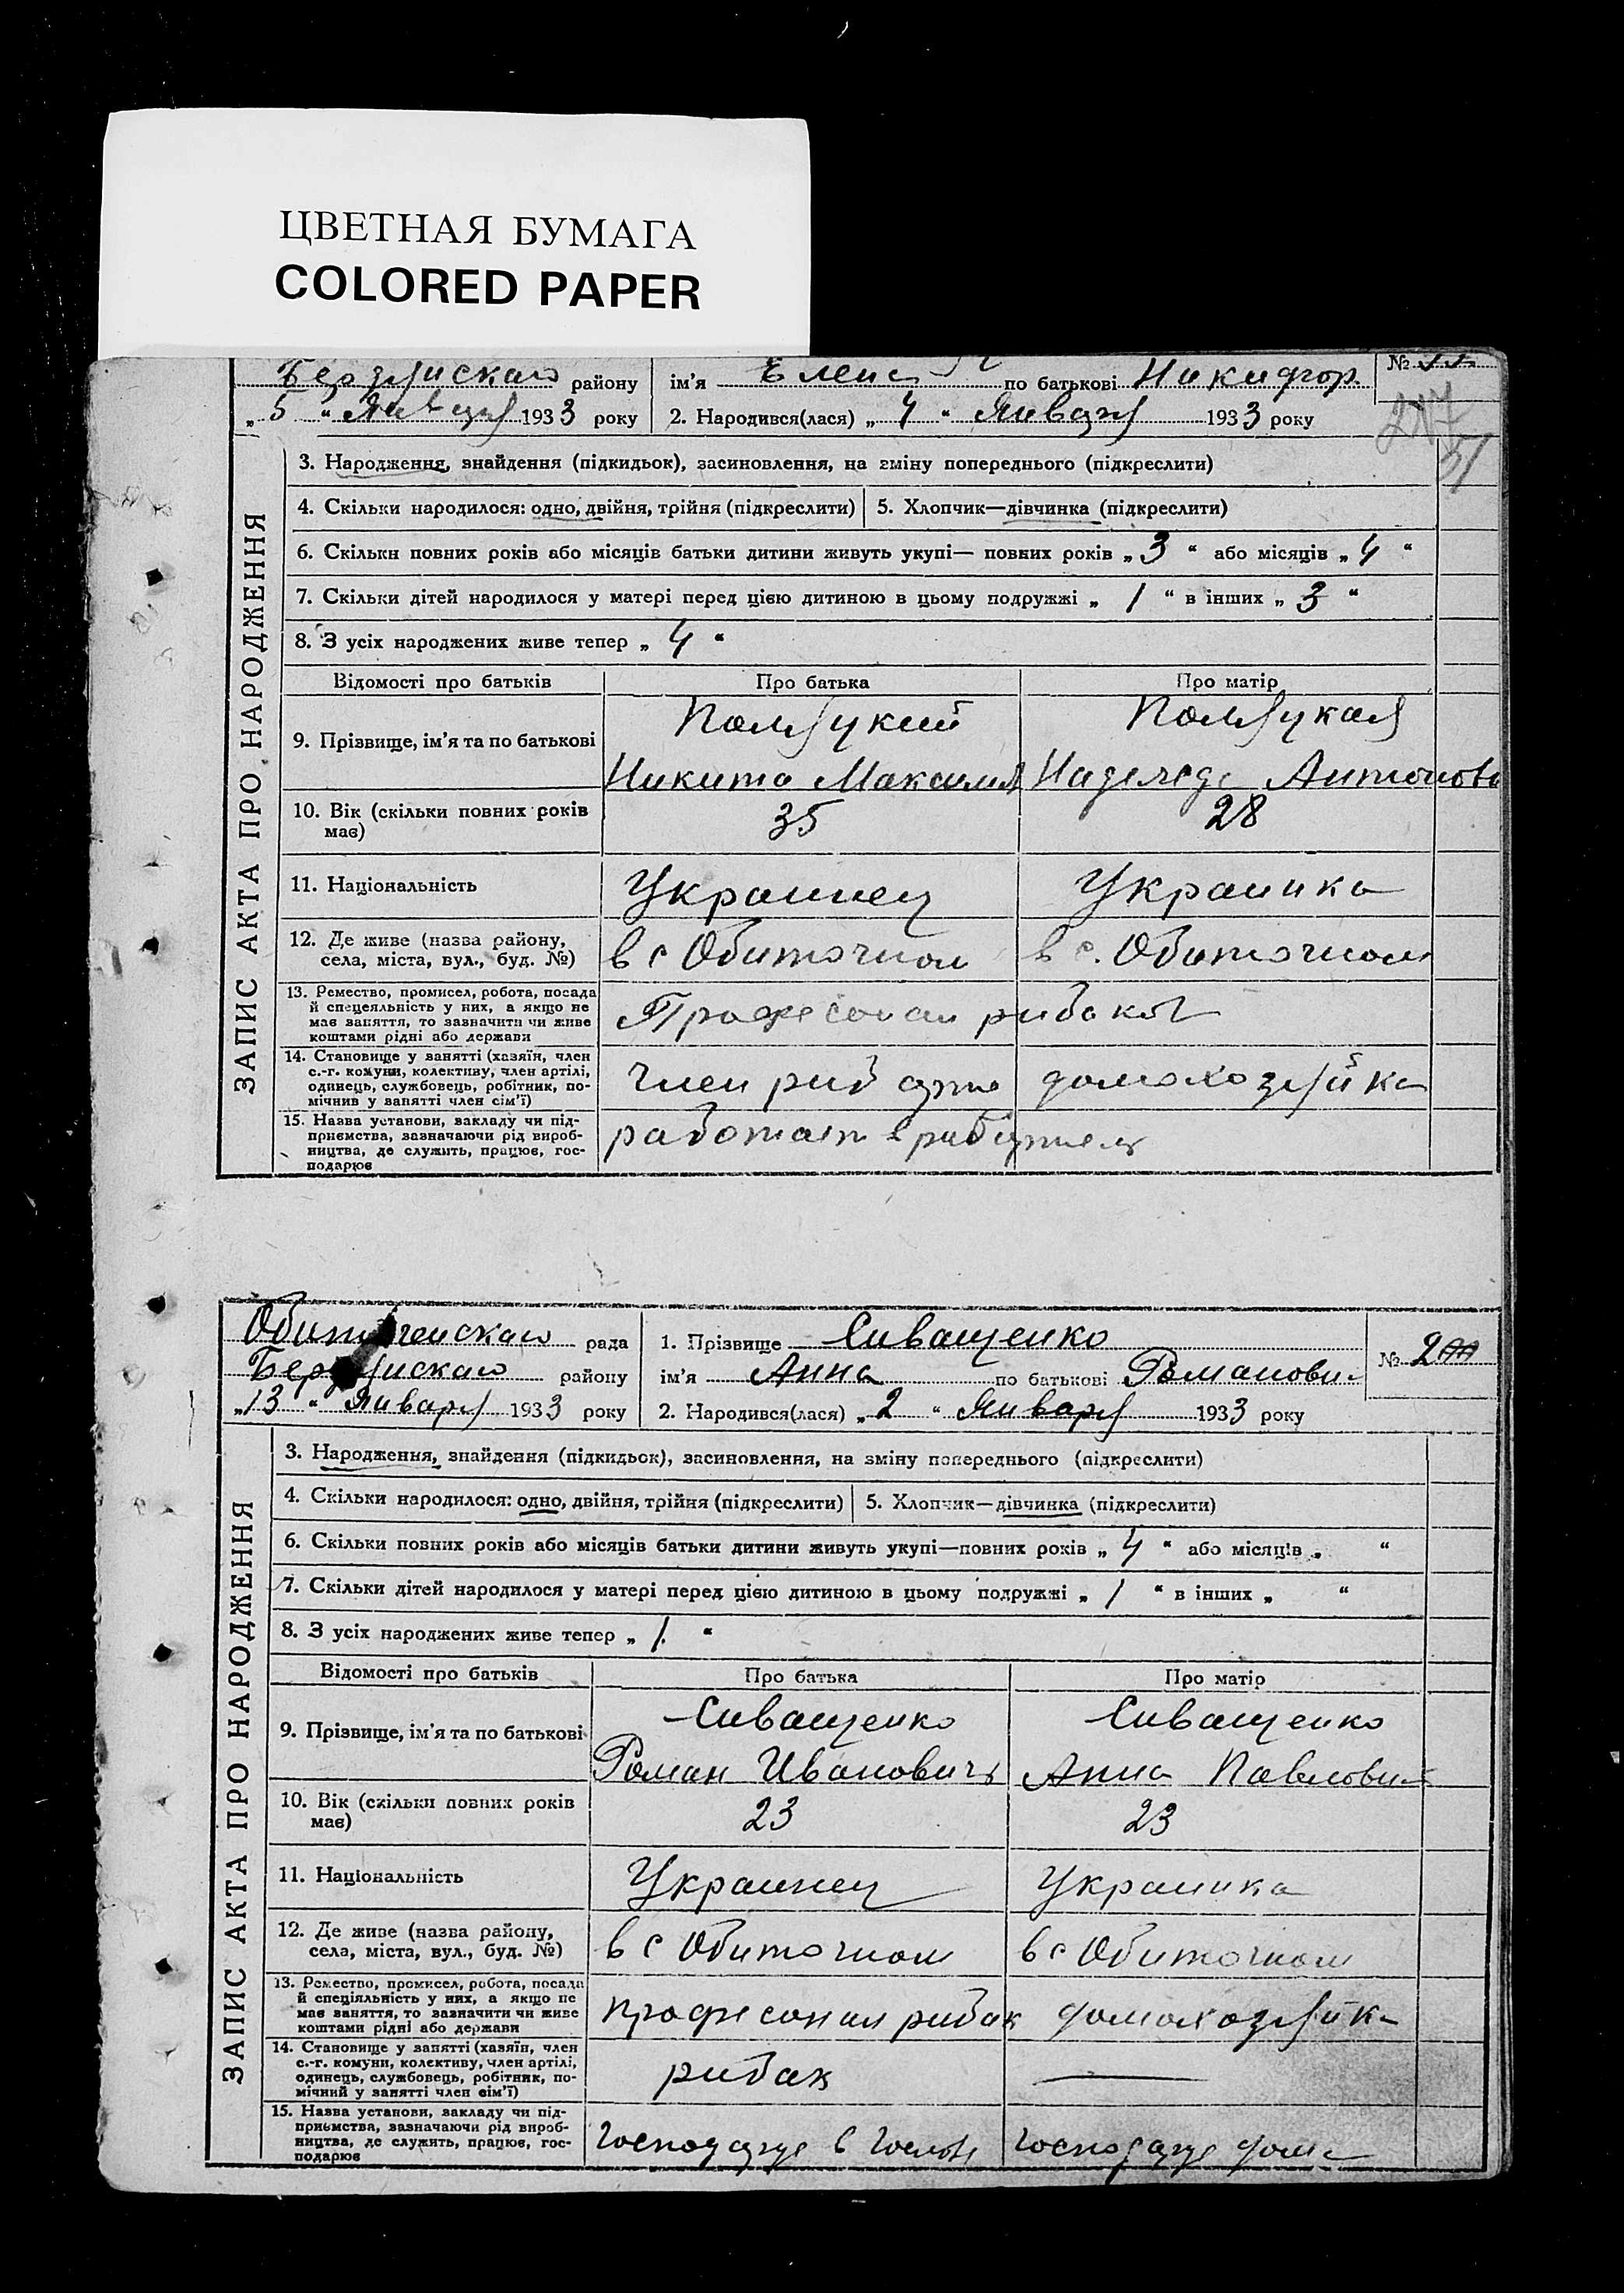 ЦВЕТНАЯ БУМАГА
COLORED PAPER
району ім'я Елена по батькові Никифор. №
„ 5 “ Января 1933 року 2. Народився(лася) „ 4 “ Января 1933 року
217
31
ЗАПИС АКТА ПРО НАРОДЖЕННЯ
3. Народження, знайдення (підкидьок), засиновлення, на зміну попереднього (підкреслити)
4. Скільки народилося: одно, двійня, трійня (підкреслити) 5. Хлопчик—дівчинка (підкреслити)
6. Скільки повних років або місяців батьки дитини живуть укупі— повних років „ 3 “ або місяців „ 4 “
7. Скільки дітей народилося у матері перед цією дитиною в цьому подружжі „ 1 “ в інших „ 3 “
8. З усіх народжених живе тепер „ 4 “
Відомості про батьків Про батька Про матір
9. Прізвище, ім'я та по батькові
Никита Антонов
10. Вік (скільки повних років має) 35 28
11. Національність Украинец Украинка
12. Де живе (назва району, села, міста, вул., буд. №) в с Обиточном в с. Обиточном
13. Ремество, промисел, робота, посада
й спецеяльність у них, а якщо не
має заняття, то зазначити чи живе
коштами рідні або держави
14. Становище у занятті (хазяїн, член
с.-г. комуни, колективу, член артілі,
одинець, службовець, робітник, по-
мічник у занятті член сім'ї)
член риб домохозяйка
15. Назва установи, закладу чи під-
приємства, зазначаючи рід вироб-
ництва, де служить, працює, гос-
подарює
работает в
рада 1. Прізвище Сиващенко № 2
району ім'я Анна по батькові Романовн
„ 13 “ Января 1933 року 2. Народився(лася) „ 2 “ Января 1933 року
ЗАПИС АКТА ПРО НАРОДЖЕННЯ
3. Народження, знайдення (підкидьок), засиновлення, на зміну попереднього (підкреслити)
4. Скільки народилося: одно, двійня, трійня (підкреслити) 5. Хлопчик—дівчинка (підкреслити)
6. Скільки повних років або місяців батьки дитини живуть укупі—повних років „ 4 “ або місяців „ “
7. Скільки дітей народилося у матері перед цією дитиною в цьому подружжі „ 1 “ в інших „ “
8. З усіх народжених живе тепер „ 1. “
Відомості про батьків Про батька Про матір
9. Прізвище, ім'я та по батькові
Сиващенко Сиващенко
Роман Ивановичъ Анна Павловн
10. Вік (скільки повних років має) 23 23
11. Національність Украинец Украинка
12. Де живе (назва району, села, міста, вул., буд. №) в с Обиточном в с Обиточном
13. Ремество, промисел, робота, посада
й спеціяльність у них, а якщо не
має заняття, то зазначити чи живе
коштами рідні або держави
рибак домохозяйка
14. Становище у занятті (хазяїн, член
с.-г. комуни, колективу, член артілі,
одинець, службовець, робітник, по-
мічний у занятті член сім'ї)
рибак
15. Назва установи, закладу чи під-
приємства, зазначаючи рід вироб-
ництва, де служить, працює, гос-
подарює
господарує в господарує дома